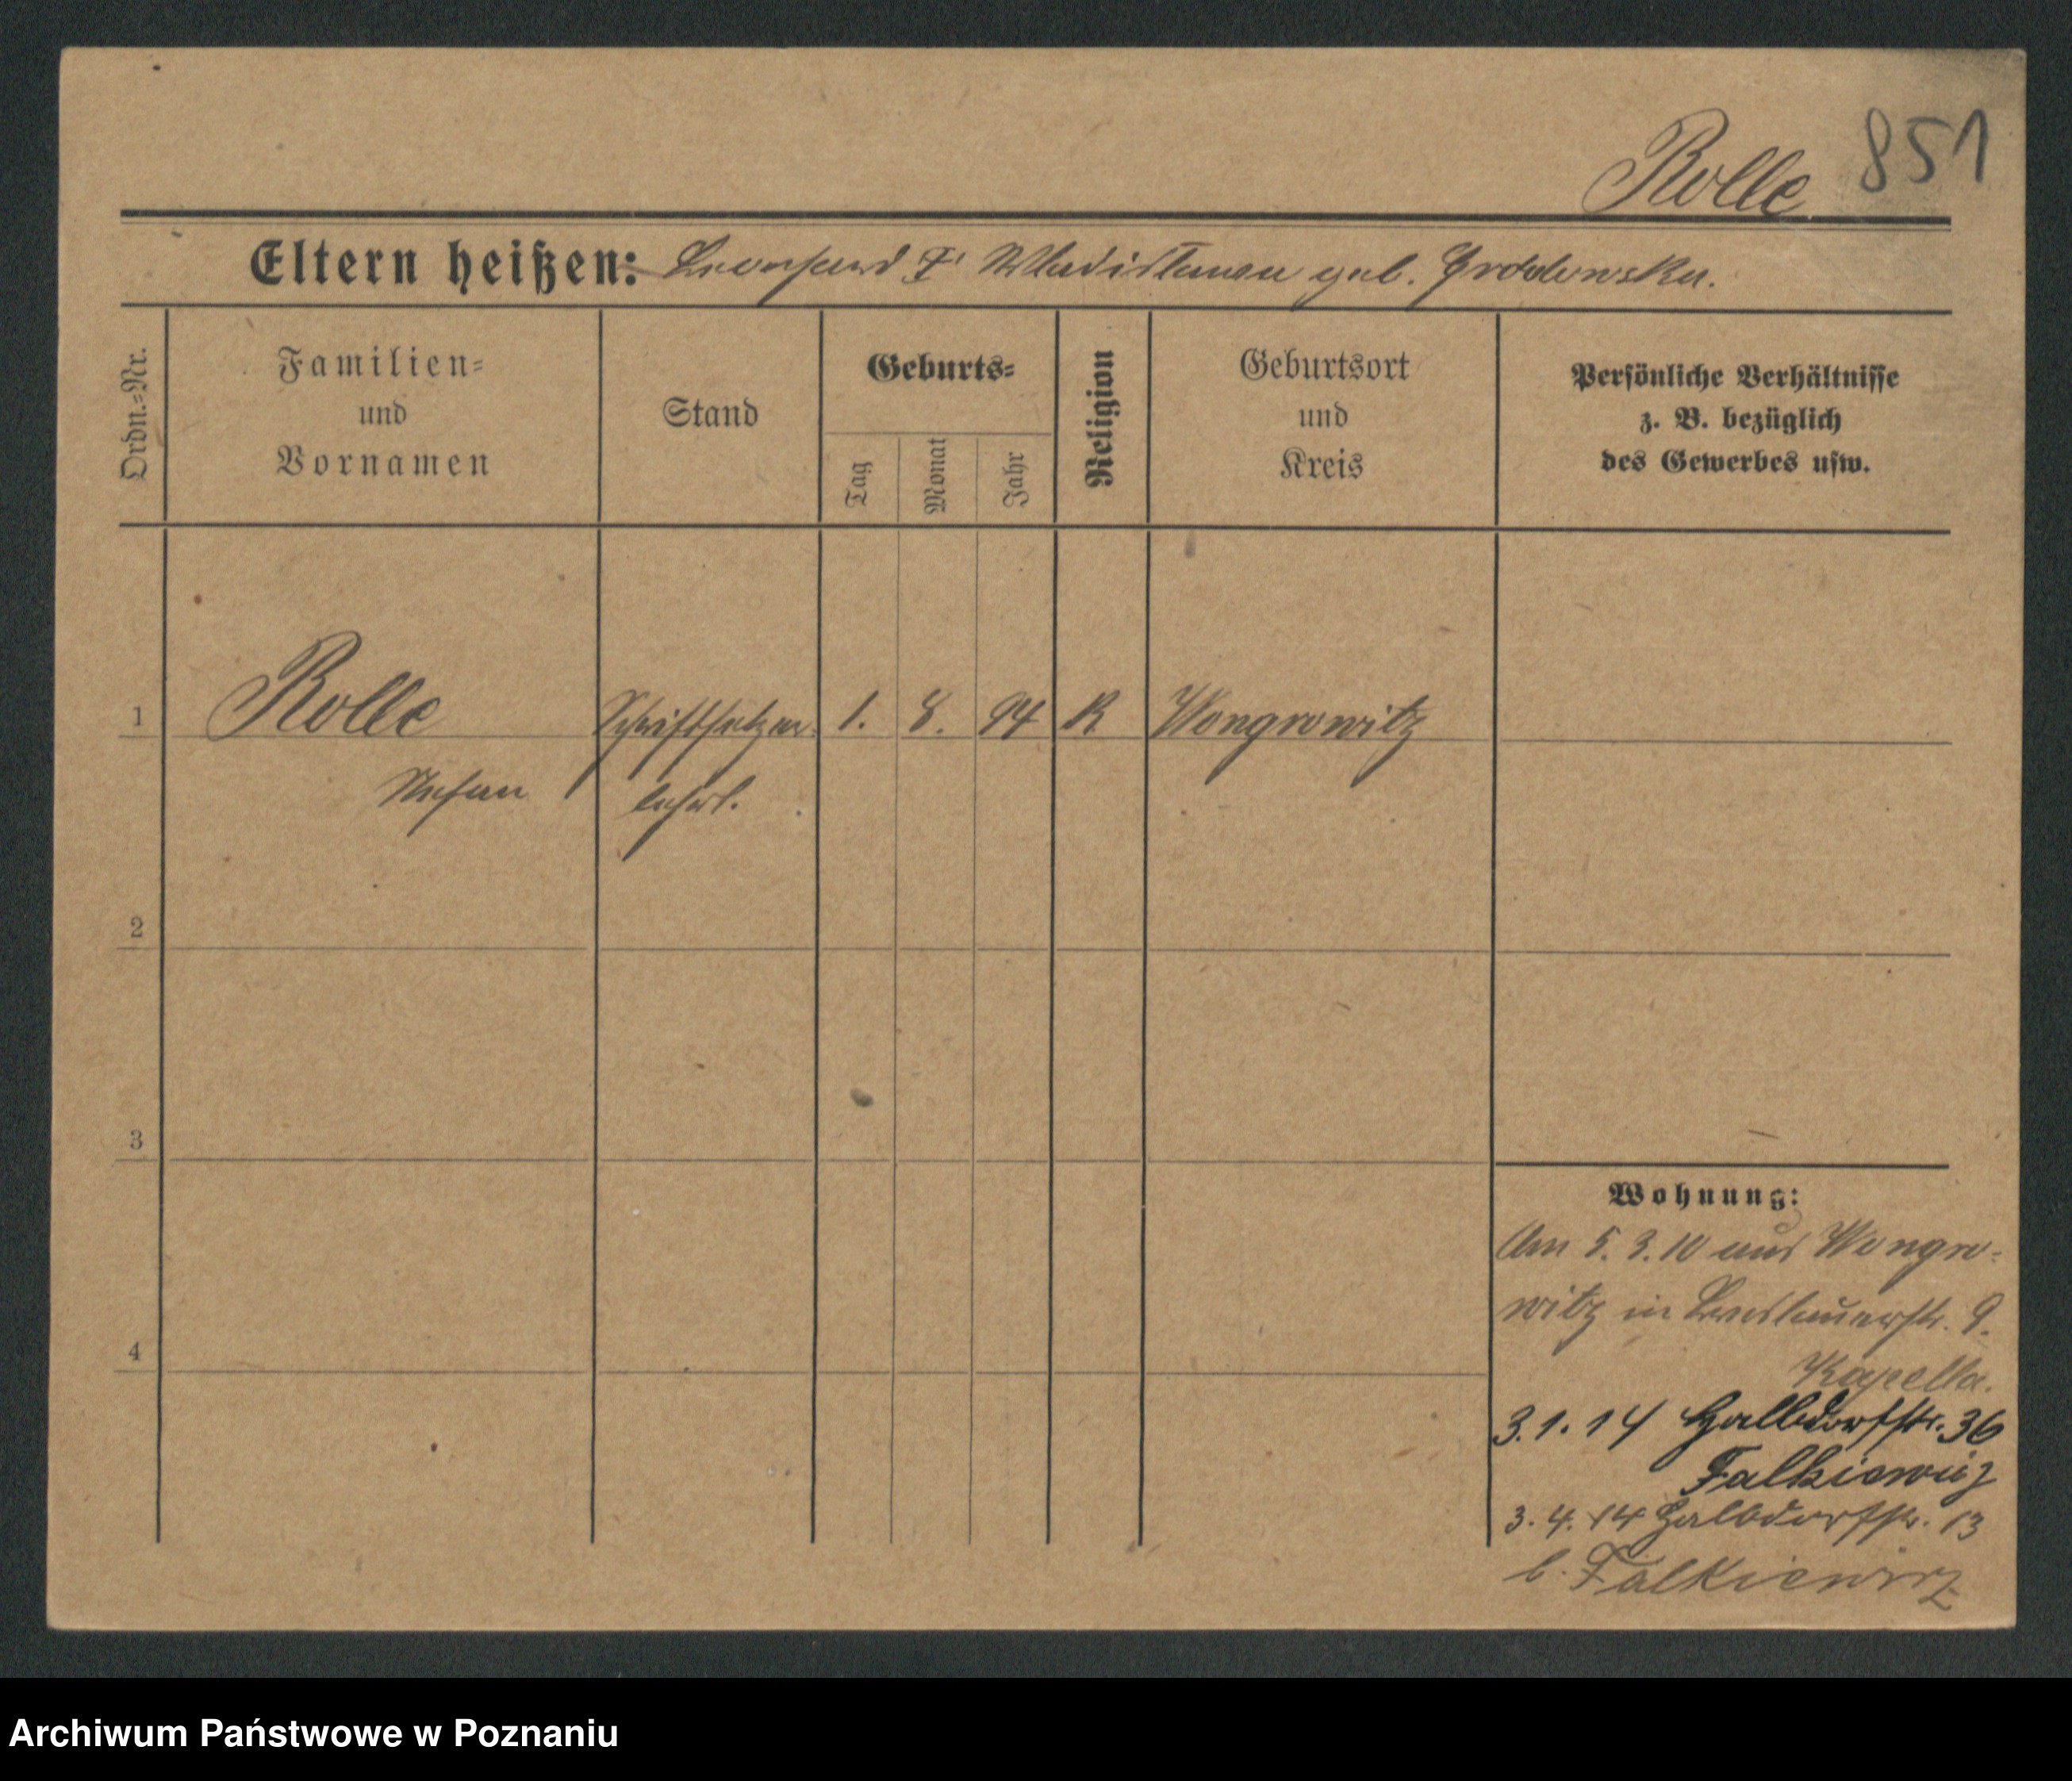 Rolle 851
Eltern heißen: Leonhard & Wladislawa geb. Grodowska.
Ordn.=Nr.
Familien=
und
Vornamen
Stand
Geburts=
Tag
Monat
Jahr
Religion
Geburtsort
und
Kreis
Persönliche Verhältnisse
z. B. bezüglich
des Gewerbes usw.
1 Rolle Schriftsetzer 1. 8. 94 R Wongrowitz
Stefan lehrl.
2
3
4
Wohnung:
Am 5.3.10 aus Wongro-
witz in Breslauerstr. 9.
Kapella.
3.1.14 Halbdorfstr. 36
Falkiewicz
3.4.14 Halbdorfstr. 13
b. Falkiewicz
Archiwum Państwowe w Poznaniu